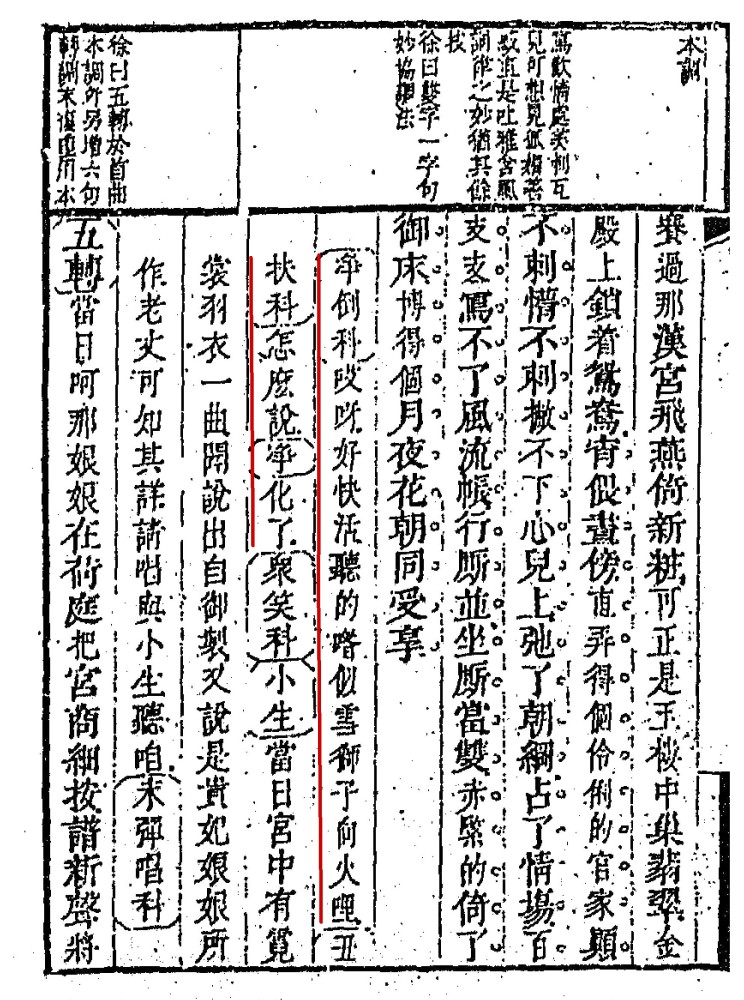 本調
寫歡情處美刺互
見可想見狐媚善
直是吐雅含風
詞律之妙猶其餘
技
徐曰雙字一字句
妙協調法
徐曰五轉於首曲
本調所另增六句
轉調末復應用本
賽過那漢宮飛燕倚新粧可正是玉樓中巢翡翠金
殿上鎖着鴛鴦宵偎晝傍直弄得個伶俐的官家顛
不剌懵不剌撇不下心兒上弛了朝綱占了情場百
支支寫不了風流帳行厮並坐厮當雙赤緊的倚了
御床博得個月夜花朝同受享
淨倒科哎呀好快活聽的喒似雪獅子向火哩丑
扶科怎麽說淨化了衆笑科小生當日宮中有霓
裳羽衣一曲聞說出自御製又說是貴妃娘娘所
作老丈可知其詳請唱與小生聽咱末彈唱科
五轉當日呵那娘娘在荷庭把宮商細按譜新聲將